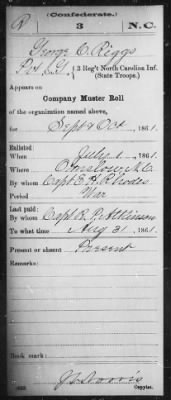 (Confederate.)
R 3 N.C.
George C. Riggs
Pvt, Co. , 3 Reg't North Carolina Inf.
(State Troops.)
Appears on
Company Muster Roll
of the organization named above,
for Sept & Oct , 1861.
Enlisted:
When July 1 , 1861.
Where Onslow N.C.
By whom Capt E. H. Rhodes
Period War
Last paid:
By whom Capt R. P. Atkinson
To what time Aug 31 , 1861.
Present or absent Present
Remarks:
Book mark:
Copyist.